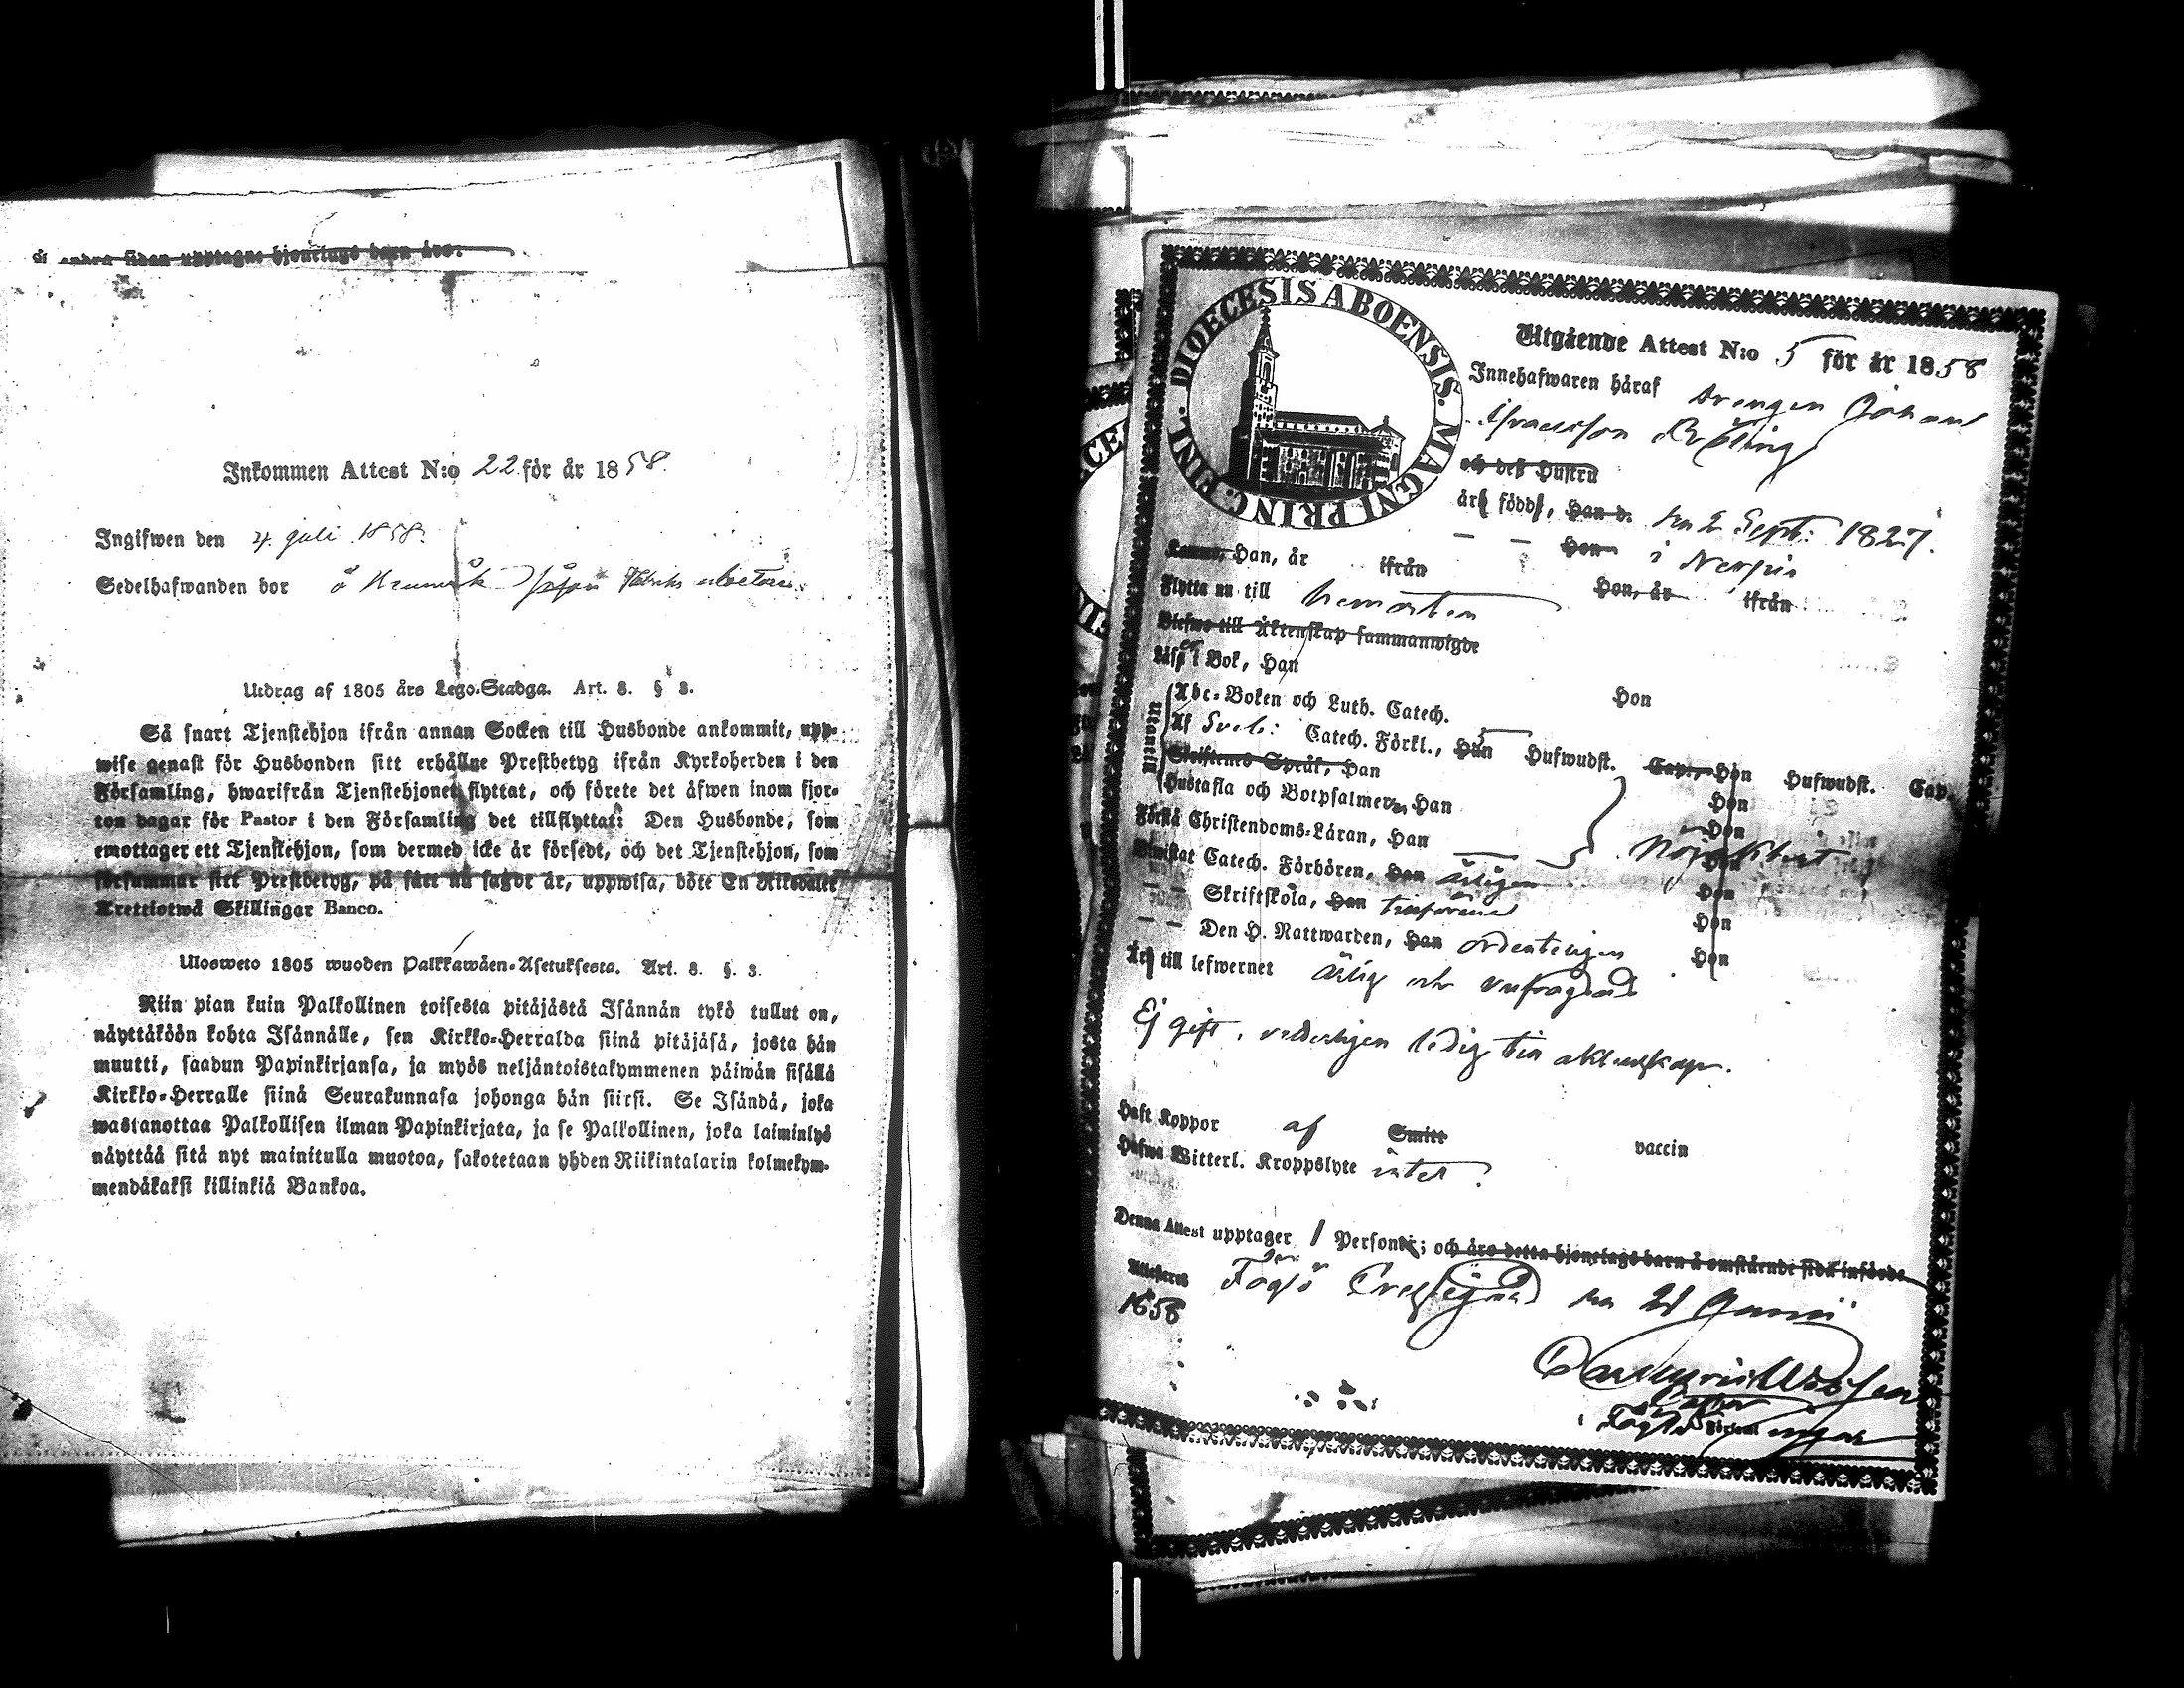 å andra sidan upptagne hjonelags barn äro:
Inkommen Attest N:o 22 för år 1858.
Ingifwen den 4 juli 1858.
Sedelhafwanden bor å
Utdrag af 1805 års Lego-Stadga. Art. 3. § 3.
Så snart Tjenstehjon ifrån annan Socken till Husbonde ankommit, upp-
wise genast för Husbonden sitt erhållne Prestbetyg ifrån Kyrkoherden i den
Församling, hwarifrån Tjenstehjonet flyttat, och förete det äfwen inom fjor-
ton dagar för Pastor i den Församling det tillflyttat: Den Husbonde, som
emottager ett Tjenstehjon, som dermed icke är försedt, och det Tjenstehjon, som
försummar sitt Prestbetyg, på sätt nu sagdt är, uppwisa, böte En Riksdaler
Trettiotwå Skillingar Banco.
Ulosweto 1805 wuoden Palkkawäen-Asetuksesta. Art. 3. §. 3.
Niin pian kuin Palkollinen toisesta pitäjästä Isännän tykö tullut on,
näyttäköön kohta Isännälle, sen Kirkko-Herralda siinä pitäjäsä, josta hän
muutti, saadun Papinkirjansa, ja myös neljäntoistakymmenen päiwän sisällä
Kirkko-Herralle siinä Seurakunnasa johonga hän siirsi. Se Isändä, joka
wastanottaa Palkollisen ilman Papinkirjata, ja se Palkollinen, joka laiminlyö
näyttää sitä nyt mainitulla muotoa, sakotetaan yhden Riikintalarin kolmekym-
mendäkaksi killinkiä Bankoa.
DIOECESIS ABOENSIS. MAGNI PRINC. FINL.
Utgående Attest N:o 5 för år 1858
Innehafwaren häraf Drengen Johan
Israelsson
och deß Hustru
är född, Han d. den 2 Sept: 1827.
Hon i Nerpis
Komne, Han, år ifrån Hon, år ifrån
Flytta nu till hemorten
Blefwo till Äktenskap sammanwigde
Läser i Bok, Han Hon
Utantill
Abc-Boken och Luth. Catech.
Af Sveb: Catech. Förkl., Han 5 Hufwudst. Cap., Hon Hufwudst. Cap.
Skriftenes Språk, Han Hon
Hustafla och Botpsalmer, Han Hon
Förstå Christendoms-Läran, Han Nöjaktigt Hon
Bewistat Catech. Förhören, Han årligen Hon
— — Skriftskola, Han Hon
— — Den H. Nattwarden, Han ordenteligen Hon
Är till lefwernet ärlig och
Ej gift, ledig till äktenskap.
Haft Koppor af Smitt vaccin
Hafwa Witterl. Kroppslyte intet.
Denna Attest upptager 1 Person; och äro detta hjonelags barn å omstående sida införde
Attesteras Föglö den 21 Junii
1858
Pastor
Föglö Församl